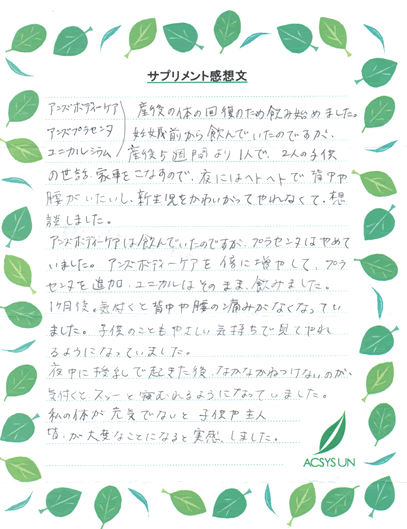 サプリメント感想文
アンズボディーケア 産後の体の回復のため飲み始めました。
アンズプラセンタ 妊娠前から飲んでいたのですが、
ユニカルシウム 産後5週間より1人で、2人の子供
の世話、家事をこなすので、夜にはヘトヘトで背中や
腰がいたいし、新生児をかわいがってやれなくて、相
談しました。
アンズボディーケアは飲んでいたのですが、プラセンタはやめて
いました。アンズボディーケアを倍に増やして、プラ
センタを追加、ユニカルはそのまま、飲みました。
1ヶ月後。気付くと背中や腰の痛みがなくなってい
ました。子供のこともやさしい気持ちで見てやれ
るようになっていました。
夜中に授乳で起きた後、なかなかねつけないのが、
気付くと、スッーと眠れるようになっていました。
私の体が元気でないと子供や主人
皆が大変なことになると実感しました。
ACSYS UN